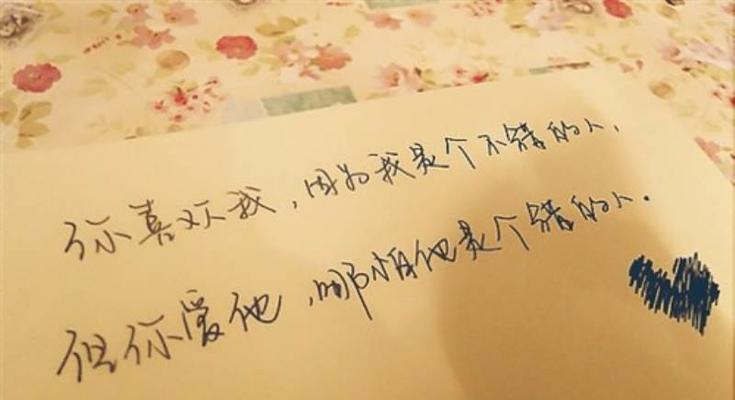 你喜欢我，因为我是个不错的人，
但你爱他，哪怕他是个错的人.